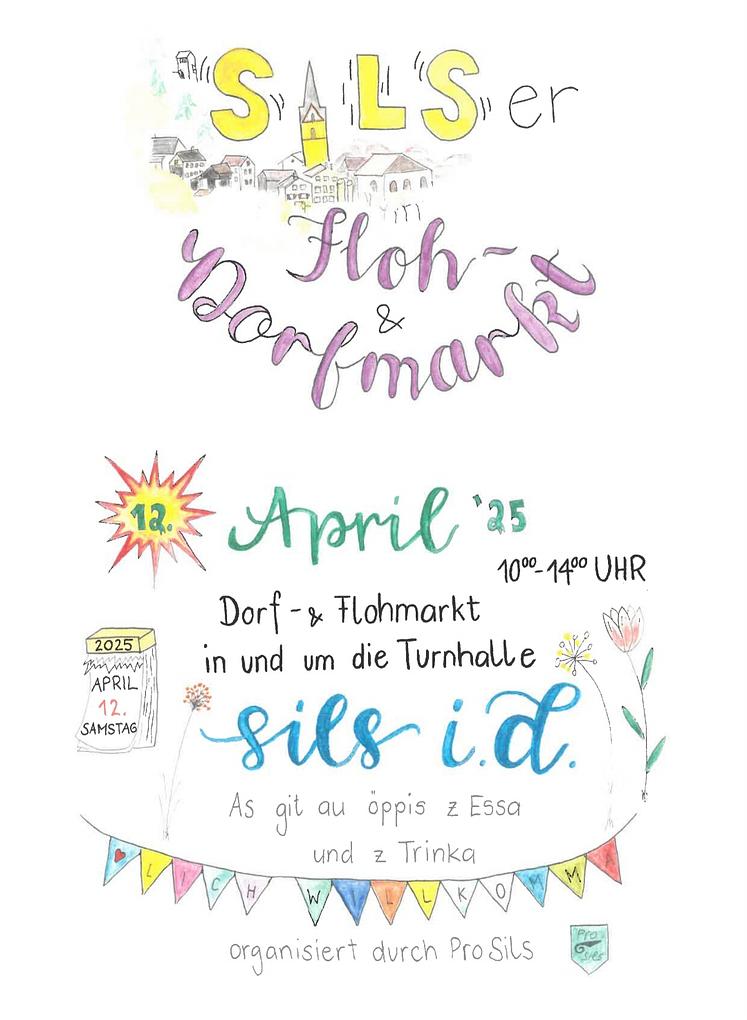 SILSer
Floh-
&
Dorfmarkt
12. April '25
10⁰⁰-14⁰⁰ UHR
Dorf-& Flohmarkt
in und um die Turnhalle
2025
APRIL
12.
SAMSTAG
sils i.d.
As git au öppis z Essa
und z Trinka
♥LICH WILLKOMMA
organisiert durch ProSils
Pro
Sils